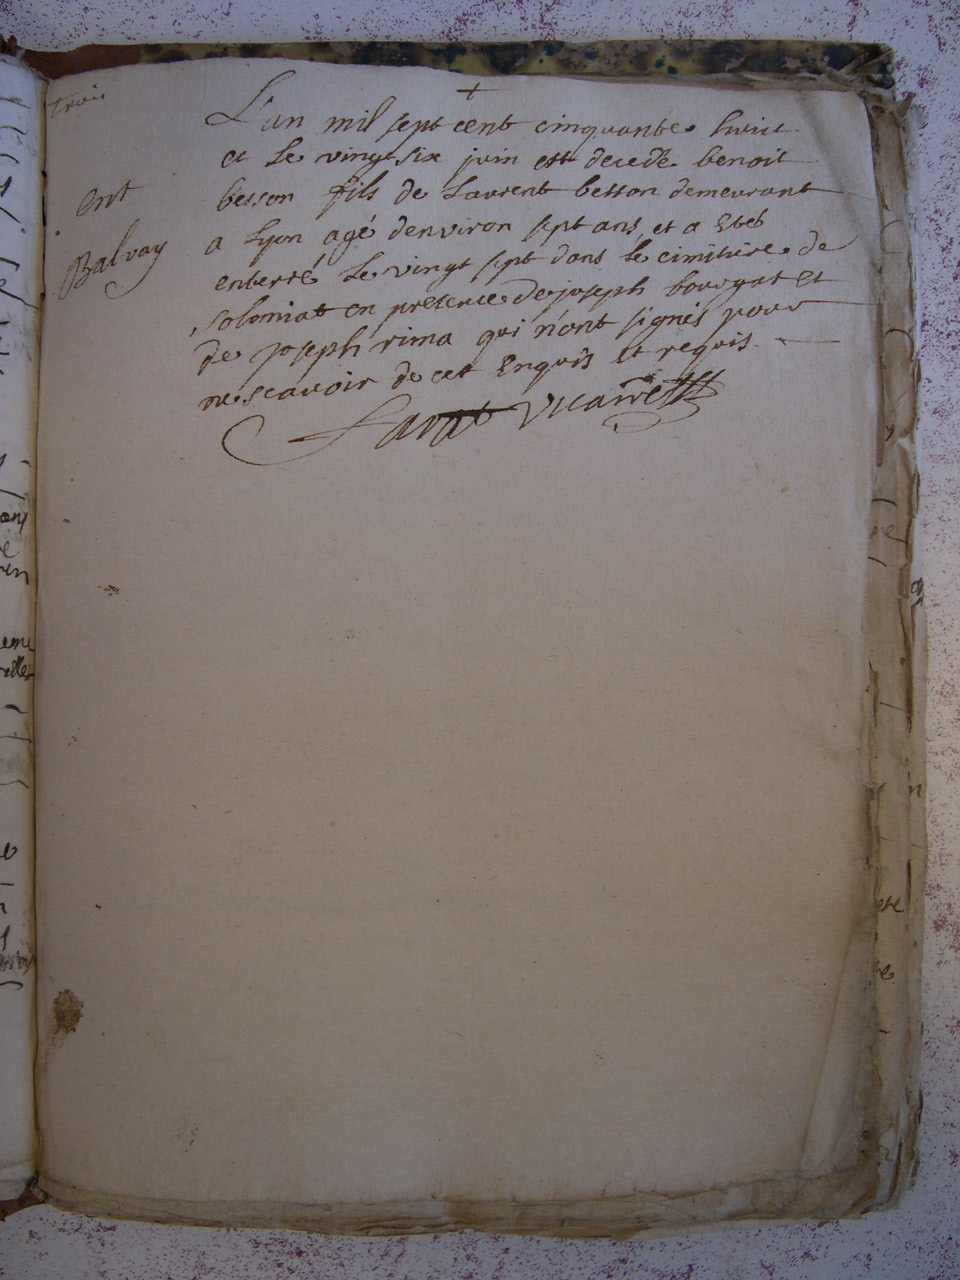 Trois
+
L'an mil sept cent cinquante huit
et Le vingt six juin est decedé benoit
besson fils de Laurent besson demeurant
Ent
Balvay
a Lyon agé denviron sept ans, et a Eté
enterré Le vingt sept dans le cimitiere de
solomiat en presence de joseph bovagat et
de joseph rima qui n'ont signés pour
ne scavoir de cet Enquis et requis.
Vicaire